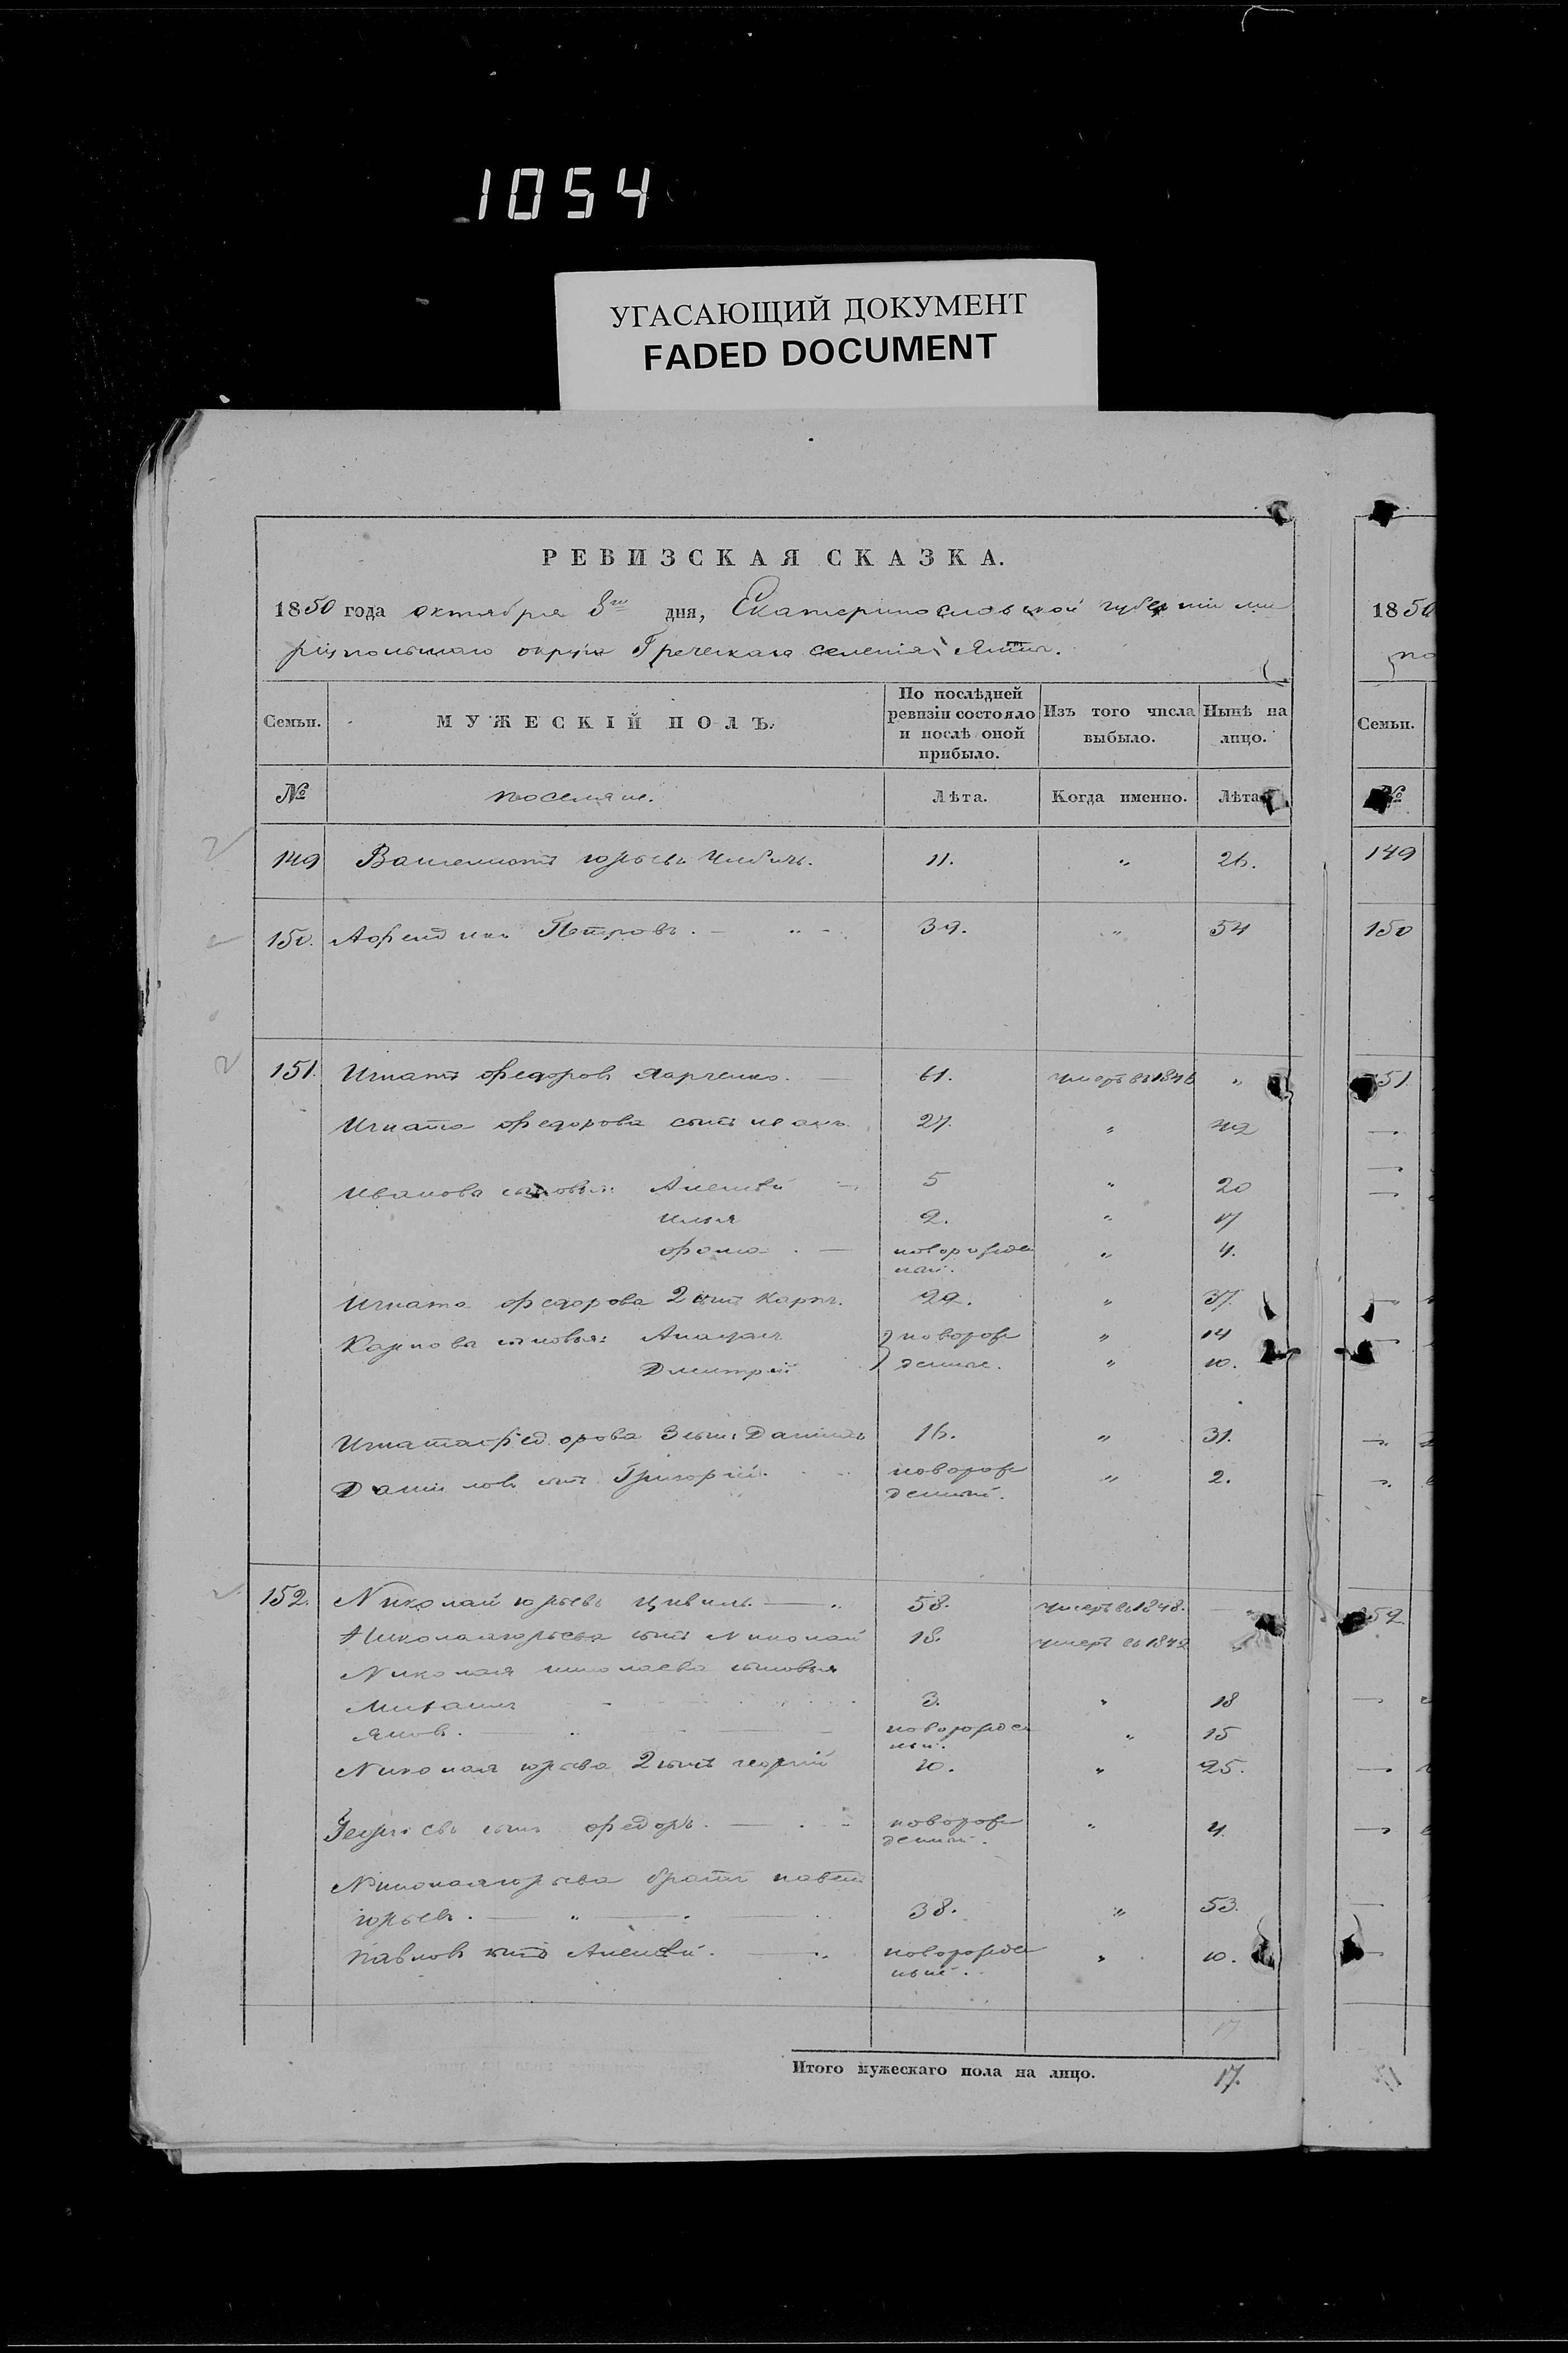 1054
УГАСАЮЩИЙ ДОКУМЕНТ
FADED DOCUMENT
РЕВИЗСКАЯ СКАЗКА.
1850 года октября 8го дня, Екатеринославской губерніи Ма
ріупольскаго округа Греческаго селенія Ялты.
Семьи. МУЖЕСКІЙ ПОЛЪ. По послѣдней ревизіи состояло и послѣ оной прибыло. Изъ того числа выбыло. Нынѣ на лицо.
№ поселяне. Лѣта. Когда именно. Лѣта
149 юрьевъ 11. " 26.
150. Петровъ. 39. " 54
151. Игнатъ Федоровъ Харченко. 61. умеръ въ 1846 "
Игната Федорова сынъ иванъ 27. " 42
Иванова сыновья: Алексѣй 5 " 20
илья 2. " 17
Фома 4.
новорожден
ный.
Игната Федорова 2 сынъ Карпъ. 22. " 37.
Карпова сыновья: } новорож " 14
Дмитрій денные. " 10.
Игната Федорова 3 сынъ Данилъ 16. " 31.
Даниловъ сынъ Григорій. новорож " 2.
денный.
152. Николай юрьевъ 58. умеръ въ 1848. "
Николая юрьева сынъ Николай 18. умеръ въ 1842 "
Николая николаева сыновья
Михаилъ 3. " 18
Яковъ. новорожден " 15
ный.
Николая юрьева 2 сынъ георгій 10. " 25.
Георгіевъ сынъ Федоръ. новорож " 4
денный.
Николая юрьева братъ павелъ
юрьевъ. 38. " 53.
Павловъ сынъ Алексѣй. новорожден " 10.
ный.
17
Итого мужескаго пола на лицо. 17.
1850
Семьи.
№
149
150
151
152